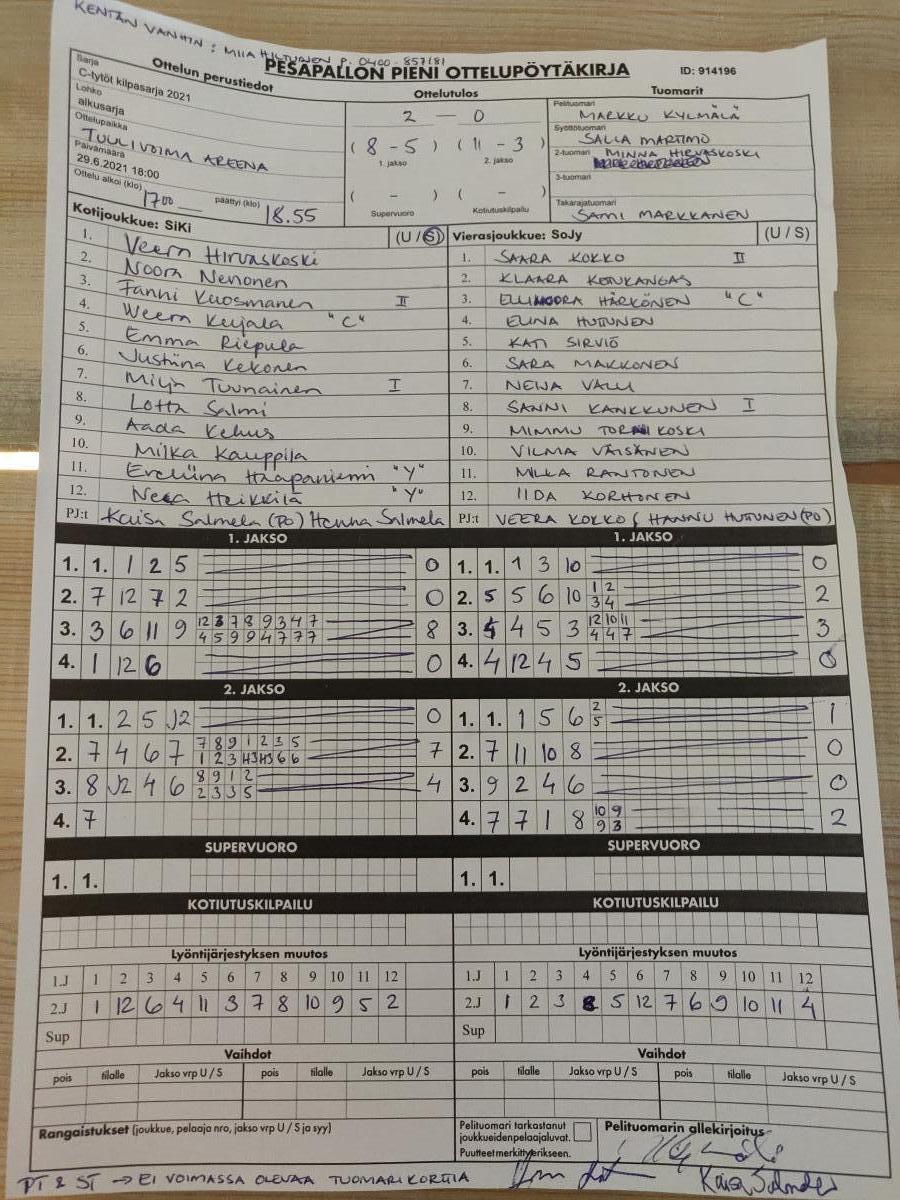 KENTÄN VANHIN : MIIA HILTUNEN P. 0400 - 857181
PESÄPALLON PIENI OTTELUPÖYTÄKIRJA
ID: 914196
Ottelun perustiedot
Sarja
C-tytöt kilpasarja 2021
Lohko
alkusarja
Ottelupaikka
TUULIVOIMA AREENA
Päivämäärä
29.6.2021 18:00
Ottelu alkoi (klo) 1700 päättyi (klo) 18.55
Ottelutulos
2 — 0
( 8 - 5 ) ( 11 - 3 )
1. jakso 2. jakso
( - ) ( - )
Supervuoro Kotiutuskilpailu
Tuomarit
Pelituomari
MARKKU KYLMÄLÄ
Syöttötuomari
SALLA MARTIMO
2-tuomari MINNA HIRVASKOSKI
3-tuomari
Takarajatuomari
SAMI MARKKANEN
Kotijoukkue: SiKi (U / S)
1. Veera Hirvaskoski
2. Noora Nenonen
3. Fanni Kuosmanen II
4. Weera Keijala "C"
5. Emma Riepula
6. Justiina Kekonen
7. Milja Tuunainen I
8. Lotta Salmi
9. Aada Kehus
10. Milka Kauppila
11. Eveliina Haapaniemi "Y"
12. Neea Heikkilä "Y"
PJ:t Kaisa Salmela (PO) Henna Salmela
Vierasjoukkue: SoJy (U / S)
1. SAARA KOKKO II
2. KLAARA KETUKANGAS
3. ELLINOORA HÄRKÖNEN "C"
4. ELINA HUTUNEN
5. KATI SIRVIÖ
6. SARA MAKKONEN
7. NEIJA VALLI
8. SANNI KANKKUNEN I
9. MIMMU TORNIKOSKI
10. VILMA VÄISÄNEN
11. MILLA RANTONEN
12. IIDA KORHONEN
PJ:t VEERA KOKKO ( HANNU HUTUNEN (PO)
1. JAKSO
1. 1. 1 2 5 0
2. 7 12 7 2 0
3. 3 6 11 9 12 3 7 8 9 3 4 7 8
4 5 9 9 4 7 7 7
4. 1 12 6 0
1. JAKSO
1. 1. 1 3 10 0
2. 5 5 6 10 1 2 2
3 4
3. 4 4 5 3 12 10 11 3
4 4 7
4. 4 12 4 5 0
2. JAKSO
1. 1. 2 5 J2 0
2. 7 4 6 7 7 8 9 1 2 3 5 7
1 2 3 H3 H3 6 6
3. 8 J2 4 6 8 9 1 2 4
2 3 3 5
4. 7
2. JAKSO
1. 1. 1 5 6 2 1
5
2. 7 11 10 8 0
3. 9 2 4 6 0
4. 7 7 1 8 10 9 2
9 3
SUPERVUORO
1. 1.
SUPERVUORO
1. 1.
KOTIUTUSKILPAILU
KOTIUTUSKILPAILU
Lyöntijärjestyksen muutos
1.J 1 2 3 4 5 6 7 8 9 10 11 12
2.J 1 12 6 4 11 3 7 8 10 9 5 2
Sup
Lyöntijärjestyksen muutos
1.J 1 2 3 4 5 6 7 8 9 10 11 12
2.J 1 2 3 8 5 12 7 6 9 10 11 4
Sup
Vaihdot
pois tilalle Jakso vrp U / S pois tilalle Jakso vrp U / S
Vaihdot
pois tilalle Jakso vrp U / S pois tilalle Jakso vrp U / S
Rangaistukset (joukkue, pelaaja nro, jakso vrp U / S ja syy)
Pelituomari tarkastanut
joukkueidenpelaajaluvat.
Puutteet merkitty erikseen.
Pelituomarin allekirjoitus
PT & ST → EI VOIMASSA OLEVAA TUOMARIKORTTIA